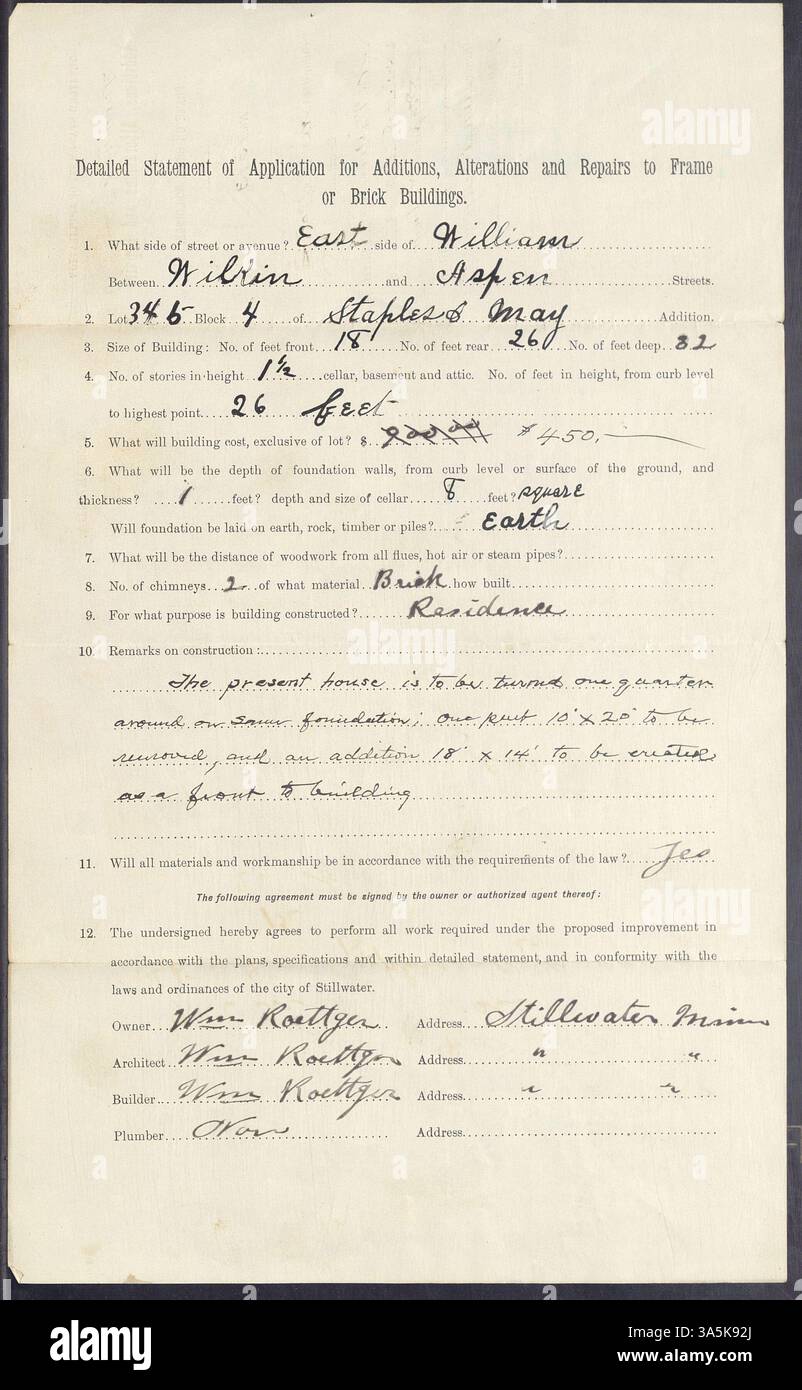 Detailed Statement of Application for Additions, Alterations and Repairs to Frame
or Brick Buildings.
1. What side of street or avenue? East side of William
Between Wilkin and Aspen Streets.
2. Lot 3 4 5 Block 4 of Staples & May Addition.
3. Size of Building: No. of feet front 18 No. of feet rear 26 No. of feet deep 32
4. No. of stories in height 1 1/2 cellar, basement and attic. No. of feet in height, from curb level
to highest point 26 feet
5. What will building cost, exclusive of lot? $ $450.
6. What will be the depth of foundation walls, from curb level or surface of the ground, and
thickness? 1 feet? depth and size of cellar 8 feet? square
Will foundation be laid on earth, rock, timber or piles? Earth
7. What will be the distance of woodwork from all flues, hot air or steam pipes?
8. No. of chimneys 2 of what material Brick how built
9. For what purpose is building constructed? Residence
10. Remarks on construction:
The present house is to be turned one quarter
around on same foundation; one part 10' x 20' to be
removed, and an addition 18' x 14' to be erected
as a front to building
11. Will all materials and workmanship be in accordance with the requirements of the law? Yes
The following agreement must be signed by the owner or authorized agent thereof:
12. The undersigned hereby agrees to perform all work required under the proposed improvement in
accordance with the plans, specifications and within detailed statement, and in conformity with the
laws and ordinances of the city of Stillwater.
Owner Wm Roettger Address Stillwater Minn
Architect Wm Roettger Address " "
Builder Wm Roettger Address " "
Plumber Address
alamy
Image ID: 3A5K92J
www.alamy.com